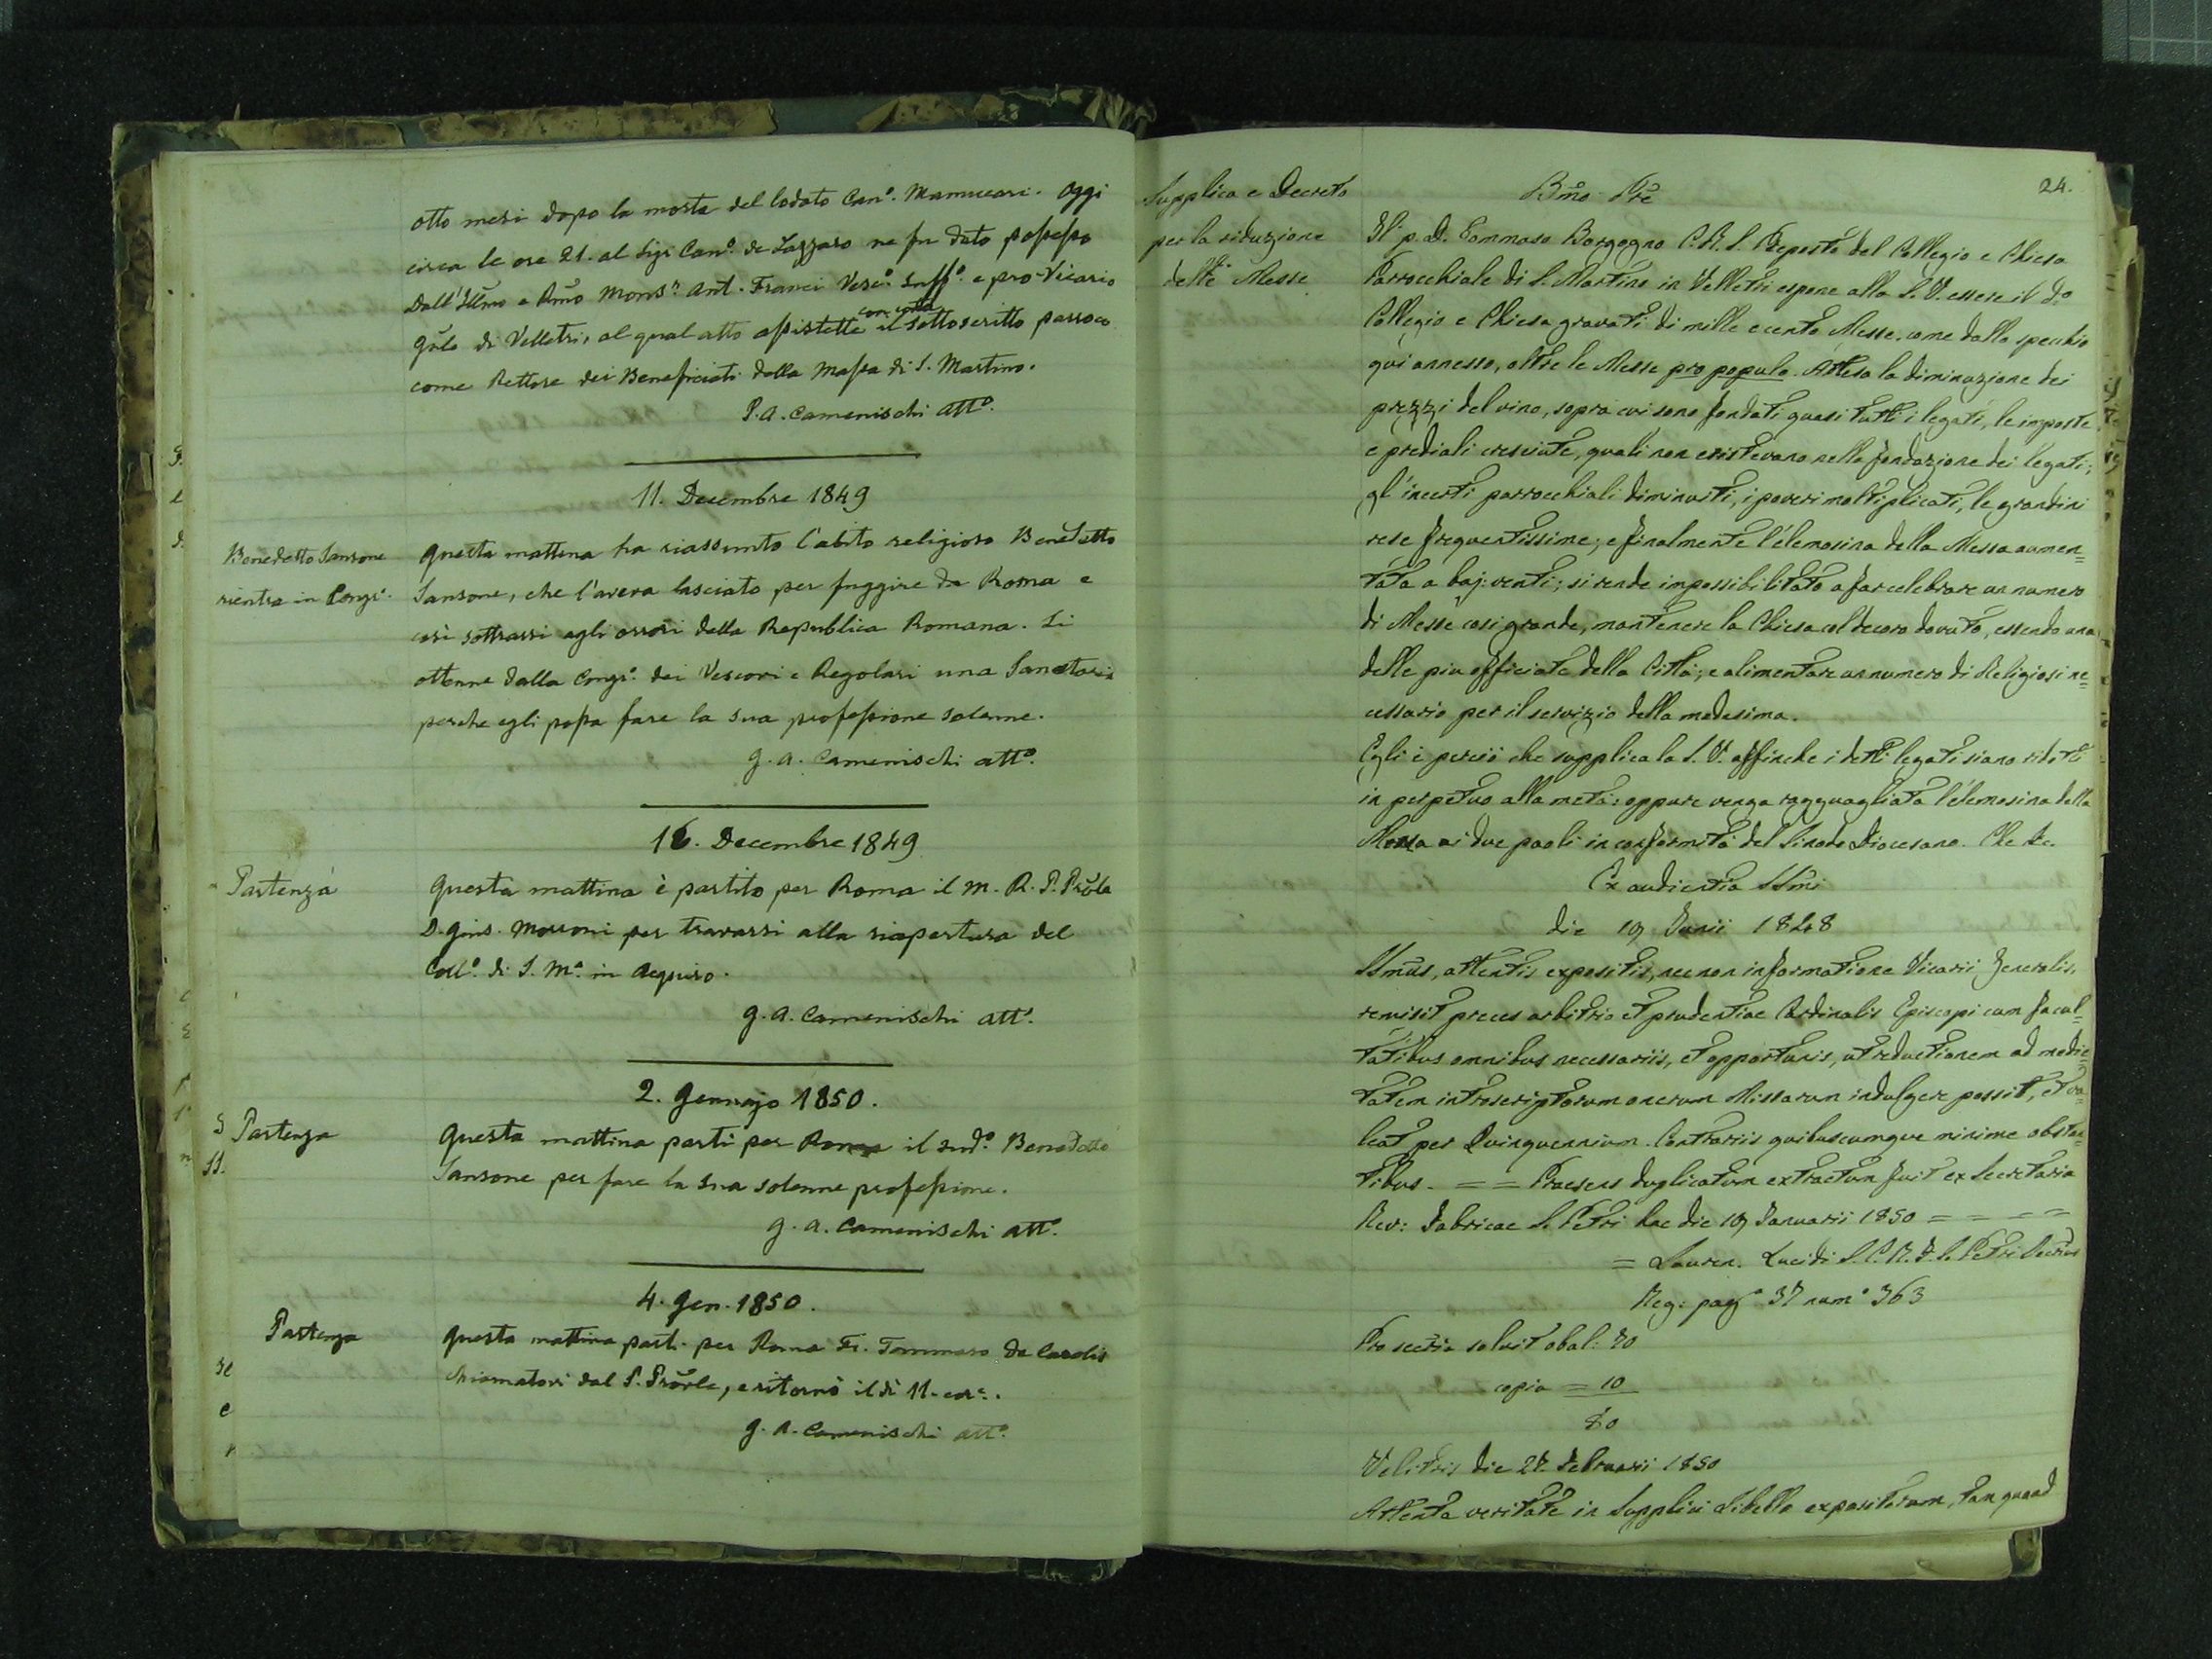 otto mesi dopo la morte del lodato Can.º Mammucari. Oggi
circa le ore 21. al Sig. Can.º de Lazzaro ne fu dato possesso
Dall'Illmo e Rmo Mons.r Ant. Franci Vesc.º Suff.º e pro-Vicario
Gñle di Velletri, al qual atto assistette con cotta il sottoscritto parroco
come Rettore dei Beneficiati della Massa di S. Martino.
G. A. Camenischi att.º
11. Decembre 1849
Benedetto Sansone
rientra in Congr.e
Questa mattina ha riassunto l'abito religioso Benedetto
Sansone, che l'aveva lasciato per fuggire da Roma e
così sottrarsi agli orrori della Repubblica Romana. Si
ottenne dalla Congr.e dei Vescovi e Regolari una Sanatoria
perche egli possa fare la sua professione solenne.
G. A. Camenischi att.º
16. Decembre 1849
Partenza
Questa mattina è partito per Roma il M. R. P. Prõle
D. Gius. Morroni per trovarsi alla riapertura del
Coll.º di S. M.ª in Aquiro.
G. A. Camenischi att.º
2. Gennajo 1850.
Partenza
Questa mattina partì per Roma il sud.º Benedetto
Sansone per fare la sua solenne professione.
G. A. Camenischi att.º
4. Gen. 1850.
Partenza
Questa mattina partì per Roma Fr. Tommaso de Carolis
chiamatovi dal P. Prõvle, e ritornò il dì 11. cor.e.
G. A. Camenischi att.º
24.
Supplica e Decreto
per la riduzione
delle Messe
Bmo Pre
Il p. D. Tommaso Borgogno C. R. S. Preposto del Collegio e Chiesa
Parrocchiale di S. Martino in Velletri espone alla S. V. essere il d.º
Collegio e Chiesa gravati di mille e cento Messe, come dallo specchio
qui annesso, oltre le Messe pro populo. Attesa la diminuzione dei
prezzi del vino, sopra cui sono fondati quasi tutti i legati, le imposte
e prediali cresciute, quali non esistevano nella fondazione dei legati;
gl'incerti parrocchiali diminuiti, i poveri moltiplicati, le grandini
rese frequentissime; e finalmente l'elemosina della Messa aumen=
tata a baj: venti; si rende impossibilitato a far celebrare un numero
di Messe così grande, mantenere la Chiesa col decoro dovuto, essendo una
delle piu officiate della Città; e alimentare un numero di Religiosi ne=
cessario per il servizio della medesima.
Egli è perciò che supplica la S. V. affinche i detti legati siano ridotti
in perpetuo alla metà: oppure venga ragguagliata l'elemosina della
Messa ai due paoli in conformità del Sinodo Diocesano. Che &c.
Ex audientia SSmi
die 19 Junii 1848
SSmus, attentis expositis, necnon informatione Vicarii Generalis,
remisit preces arbitrio et prudentiae Cardinalis Episcopi cum facul=
tatibus omnibus necessariis, et opportunis, ut reductionem ad medie=
tatem introscriptorum onerum Missarum indulgere possit, et va=
leat per Quinquennium. Contrariis quibuscumque minime obstan=
tibus. = = Praesens duplicatum extractum fuit ex Secretaria
Rev: Fabricae S. Petri hac die 19 Januarii 1850 = = = =
= Lauren. Lucidi S. C. R. F. S. Petri Secrius
Reg: pag.ª 37 num.º 363
Pro secria solvit obol: 70
copia = 10
80
Velitris die 27. Februarii 1850
Attenta veritate in Supplici Libello expositorum, tam quoad